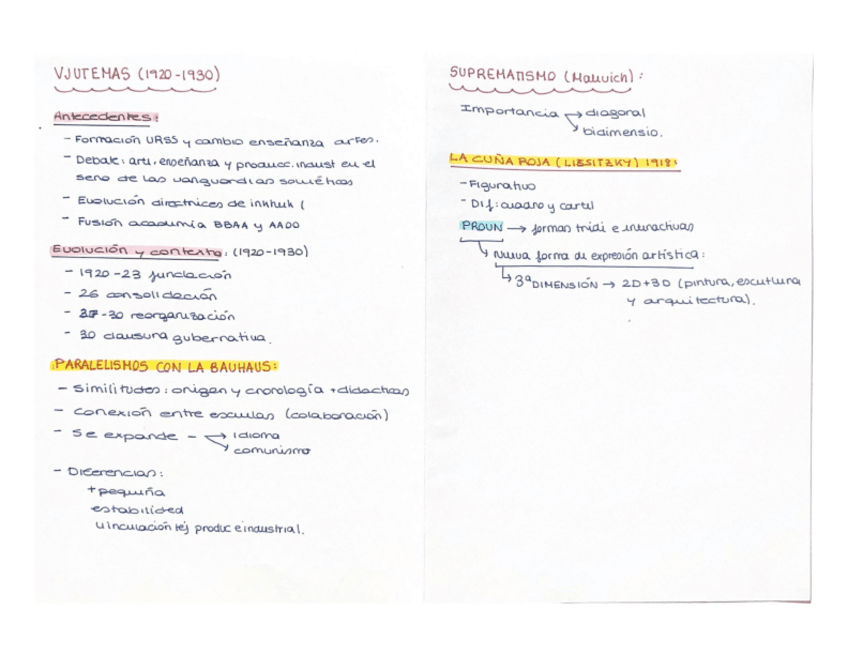 VJUTEMAS (1920-1930)
Antecedentes:
- Formación URSS y cambio enseñanza artes.
- Debate: arti, enseñanza y producc. indust en el
seno de las vanguardias soviéticas
- Evolución directrices de inkhuk (
- Fusión academia BBAA y AADD
Evolución y contexto: (1920-1930)
- 1920-23 fundación
- 26 consolidación
- 27-30 reorganización
- 30 clausura gubernativa.
PARALELISMOS CON LA BAUHAUS:
- Similitudes: origen y cronología + didacticas
- Conexión entre escuelas (colaboración)
- Se expande - → idioma
↘ comunismo
- Diferencias:
+ pequeña
estabilidad
vinculación tej produc e industrial.
SUPREMATISMO (Malevich):
Importancia → diagonal
↘ bidimensio.
LA CUÑA ROJA (LISSITZKY) 1918:
- Figurativo
- Dif: cuadro y cartel
PROUN → formas tridi e interactivas
↳ Nueva forma de expresión artística:
↳ 3ª DIMENSIÓN → 2D+3D (pintura, escultura
y arquitectura).